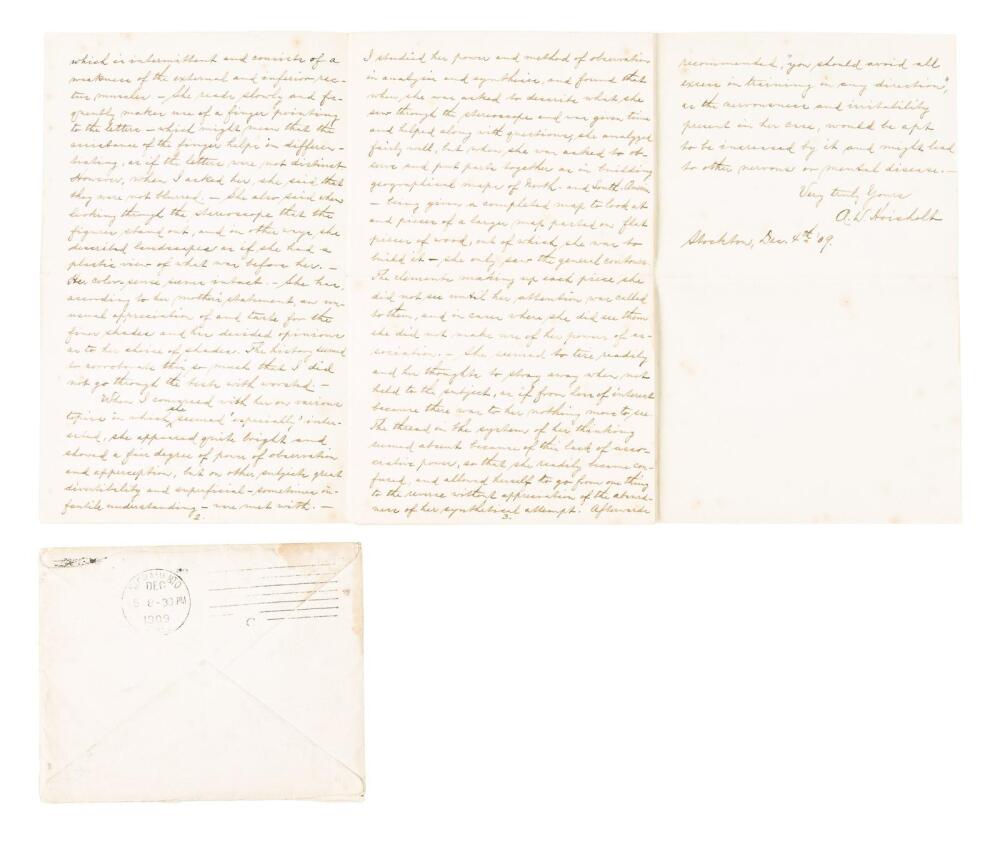 which is intermittent and consists of a
weakness of the external and inferior rec-
tus muscles. — She reads slowly and fre-
quently makes use of a finger pointing
to the letters — which might mean that the
assistance of the finger helps in differen-
tiating, as if the letters were not distinct.
However, when I asked her, she said that
they were not blurred. — She also said when
looking through the stereoscope that the
figures stand out, and in other ways she
described landscapes as if she had a
plastic view of what was before her. —
Her color sense seems intact. — She has,
according to her mother's statement, an un-
usual appreciation of and taste for the
finer shades and has decided opinions
as to her choice of shades. The history seemed
to corroborate this so much that I did
not go through the tests with worsted. —
When I conversed with her on various
topics in which she seemed "especially" inter-
ested, she appeared quite bright and
showed a fair degree of power of observation
and apperception, but on other subjects great
divertibility and superficial — sometimes in-
fantile understanding — were met with. —
2.
I studied her power and method of observation
in analysis and synthesis, and found that
when she was asked to describe what she
saw through the stereoscope and was given time
and helped along with questions, she analyzed
fairly well, but when she was asked to ob-
serve and put parts together as in building
geographical maps of North- and South-America
— being given a completed map to look at
and pieces of a larger map pasted on flat
pieces of wood, out of which she was to
build it — she only saw the general contours.
The elements making up each piece she
did not see until her attention was called
to them, and in cases where she did see them
she did not make use of her power of as-
sociation. — She seemed to tire readily
and her thoughts to stray away when not
held to the subject, as if from loss of interest
because there was to her nothing more to see.
The thread in the system of her thinking
seemed absent because of this lack of asso-
ciative power, so that she readily became con-
fused, and allowed herself to go from one thing
to the reverse without appreciation of the absurd-
ness of her synthetical attempt. Afterwards
3.
recommended, "you should avoid all
excess in training in any direction",
as the nervousness and irritability
present in her case, would be apt
to be increased by it and might lead
to other nervous or mental disease. —
Very truly Yours
A. W. Hoisholt
Stockton, Dec. 4th '09.
SACRAMENTO
DEC
5-8-30 PM
1909
C